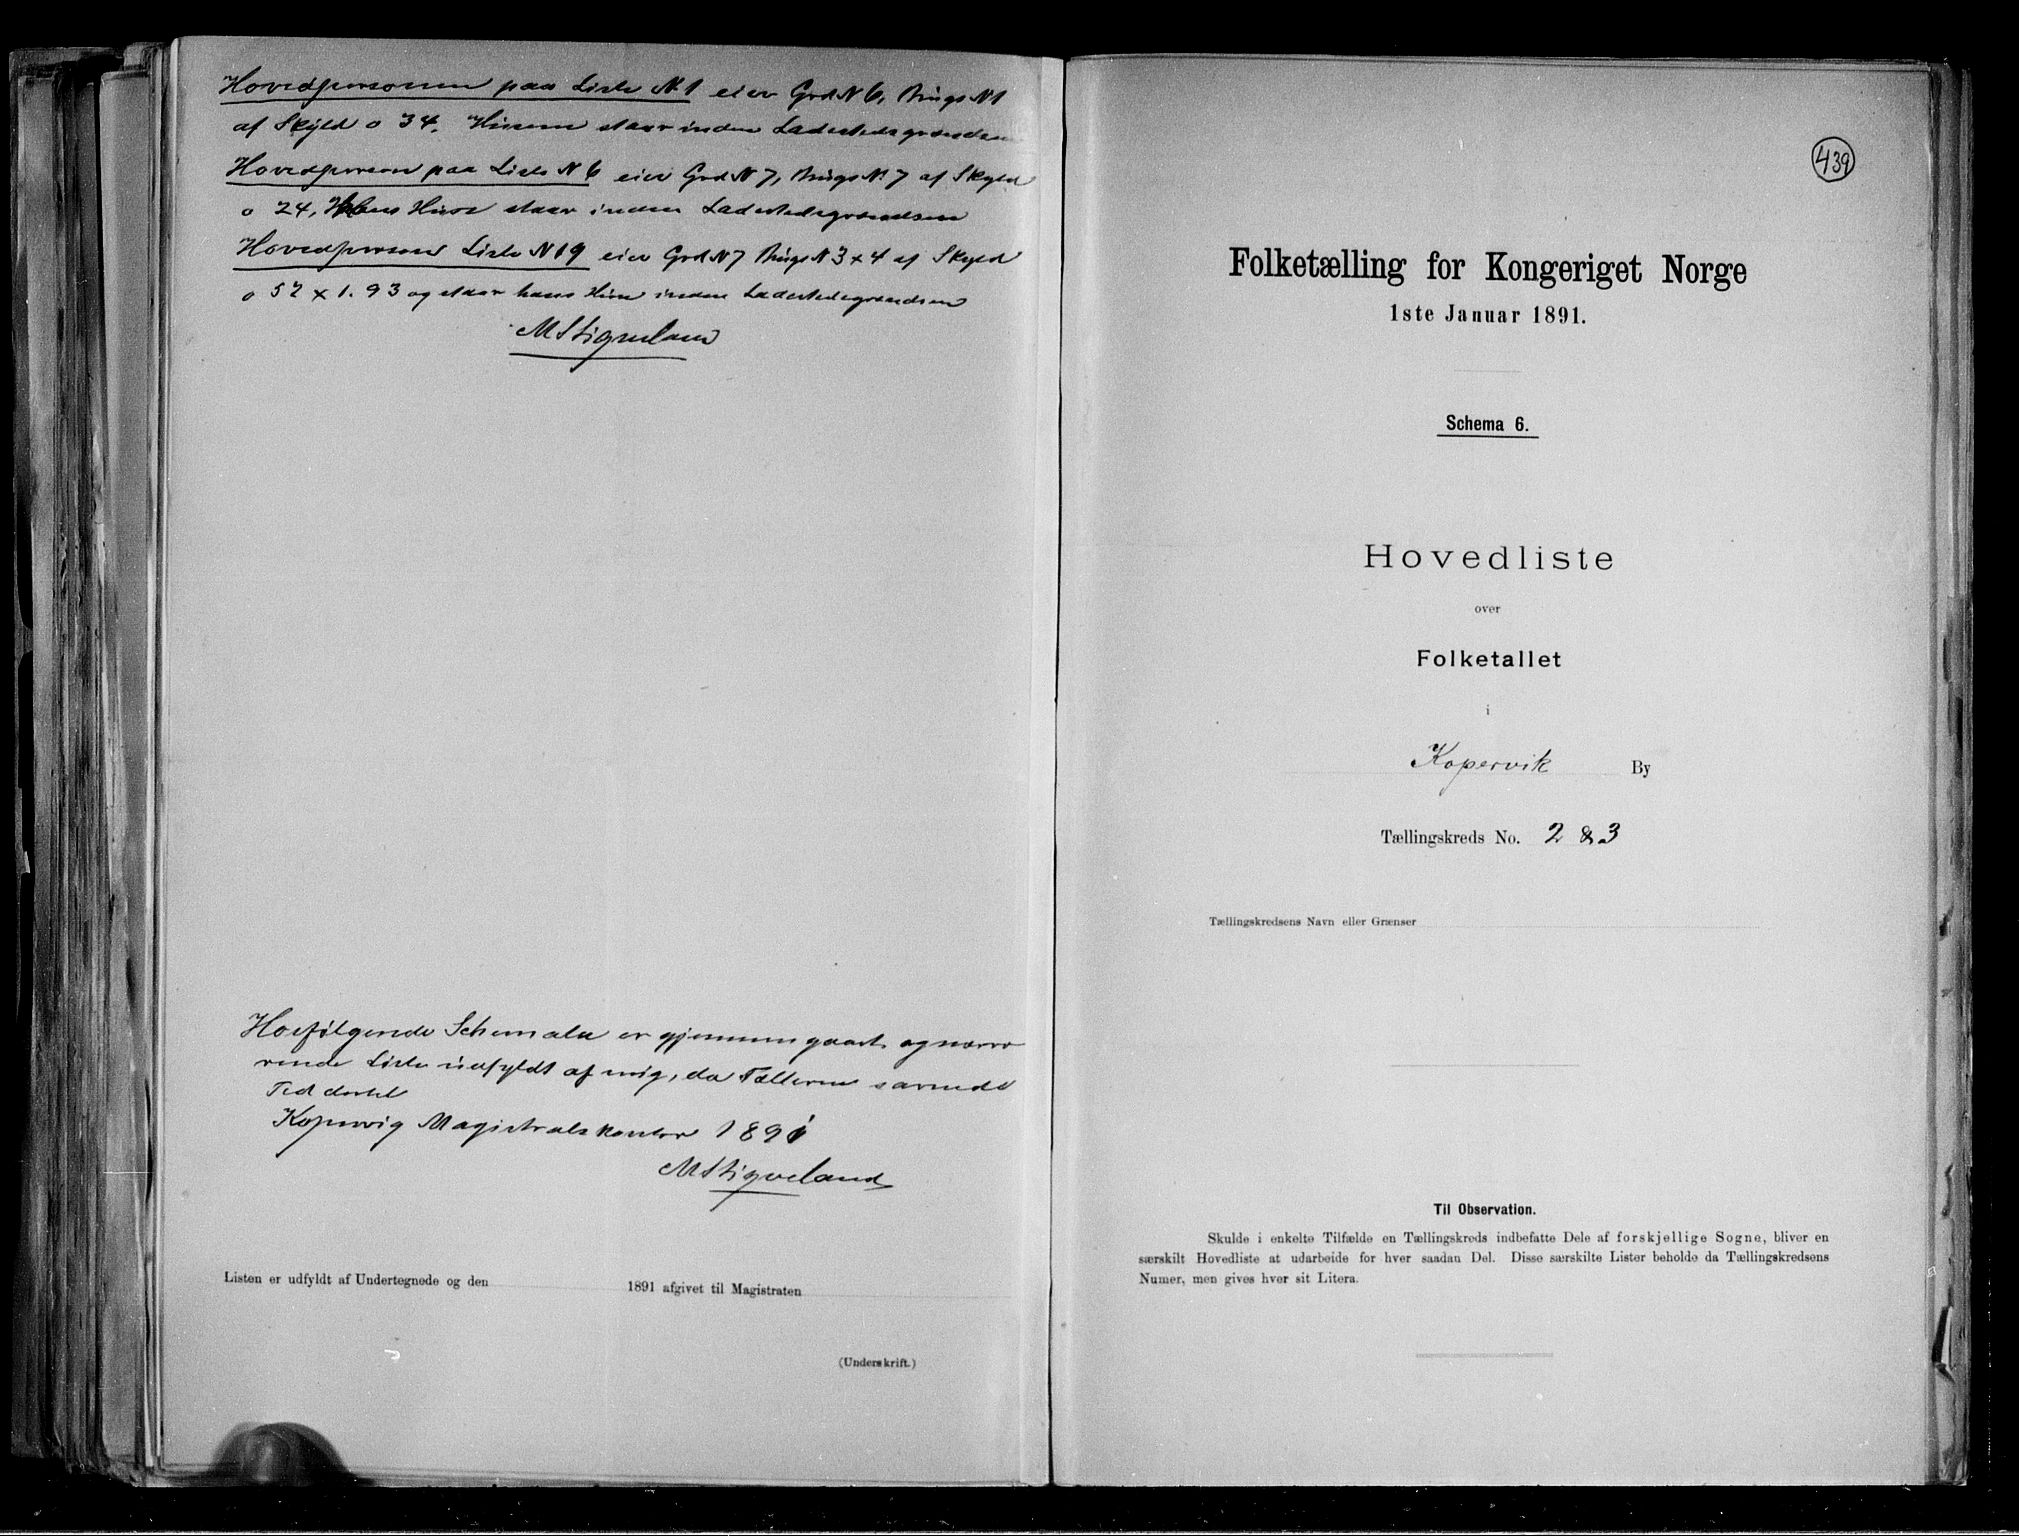 Hovedpersonen paa Liste N 1 eier Grd N 6, Brugs N 1
af Skyld o 34. Husene staar inden Ladestedsgrændsen
Hovedperson paa Liste N 6 eier Grd N 7, Brugs N. 7 af Skyld
o 24, Hans Huse staar inden Ladestedsgrændsen
Hovedperson Liste N 19 eier Grd N 7 Brugs N 3 + 4 af Skyld
o 57 + 1. 93 og staar hans Huse inden Ladestedsgrændsen
M Stigveland
Hosfølgende Schemata er gjennemgaaet og nærvæ
rende Liste udfyldt af mig, da Tælleren savnede
Tid dertil
Kopervig Magistratskontor 1891
M Stigveland
Listen er udfyldt af Undertegnede og den 1891 afgivet til Magistraten
(Underskrift.)
439
Folketælling for Kongeriget Norge
1ste Januar 1891.
Schema 6.
Hovedliste
over
Folketallet
i
Kopervik By
Tællingskreds No. 2 & 3
Tællingskredsens Navn eller Grænser
Til Observation.
Skulde i enkelte Tilfælde en Tællingskreds indbefatte Dele af forskjellige Sogne, bliver en
særskilt Hovedliste at udarbeide for hver saadan Del. Disse særskilte Lister beholde da Tællingskredsens
Numer, men gives hver sit Litera.